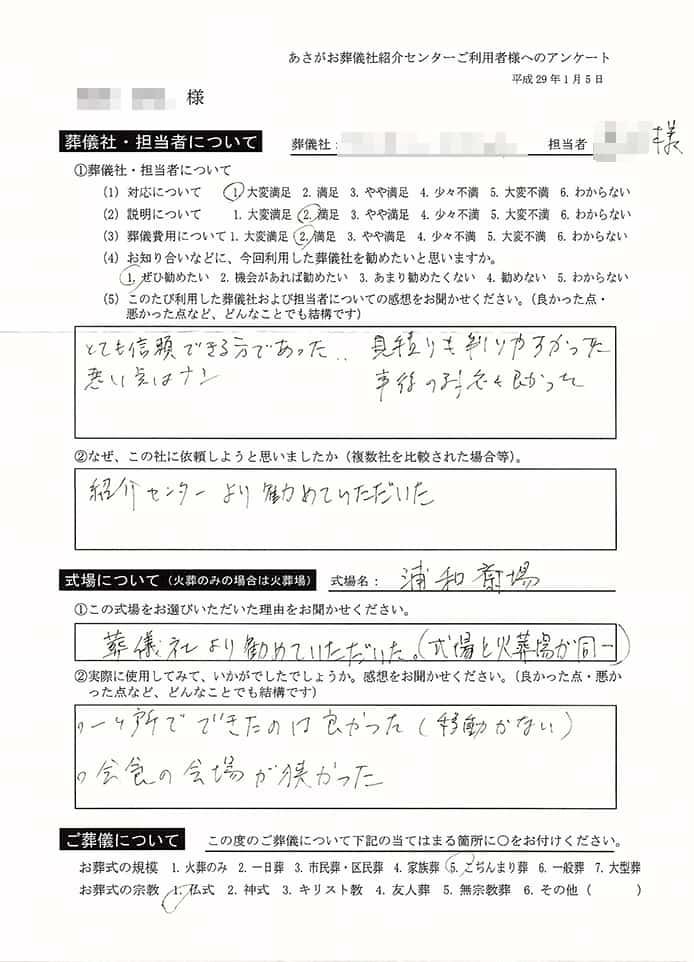 あさがお葬儀社紹介センターご利用者様へのアンケート
平成29年1月5日
様
葬儀社・担当者について 葬儀社: 担当者 様
①葬儀社・担当者について
(1) 対応について 1. 大変満足 2. 満足 3. やや満足 4. 少々不満 5. 大変不満 6. わからない
(2) 説明について 1. 大変満足 2. 満足 3. やや満足 4. 少々不満 5. 大変不満 6. わからない
(3) 葬儀費用について 1. 大変満足 2. 満足 3. やや満足 4. 少々不満 5. 大変不満 6. わからない
(4) お知り合いなどに、今回利用した葬儀社を勧めたいと思いますか。
1. ぜひ勧めたい 2. 機会があれば勧めたい 3. あまり勧めたくない 4. 勧めない 5. わからない
(5) このたび利用した葬儀社および担当者についての感想をお聞かせください。(良かった点・
悪かった点など、どんなことでも結構です)
とても信頼できる方であった.. 見積りも判りやすかった
悪い点はナシ 事後の も良かった
②なぜ、この社に依頼しようと思いましたか(複数社を比較された場合等)。
紹介センターより勧めていただいた
式場について(火葬のみの場合は火葬場) 式場名: 浦和斎場
①この式場をお選びいただいた理由をお聞かせください。
葬儀社より勧めていただいた。(式場と火葬場が同一)
②実際に使用してみて、いかがでしたでしょうか。感想をお聞かせください。(良かった点・悪か
った点など、どんなことでも結構です)
○一ヶ所でできたのは良かった(移動がない)
○会食の会場が狭かった
ご葬儀について この度のご葬儀について下記の当てはまる箇所に○をお付けください。
お葬式の規模 1. 火葬のみ 2. 一日葬 3. 市民葬・区民葬 4. 家族葬 5. こぢんまり葬 6. 一般葬 7. 大型葬
お葬式の宗教 1. 仏式 2. 神式 3. キリスト教 4. 友人葬 5. 無宗教葬 6. その他 ( )